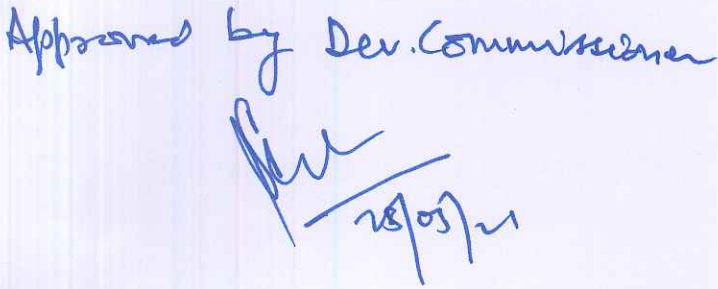 Approved by Dev. Commissioner
28/05/21